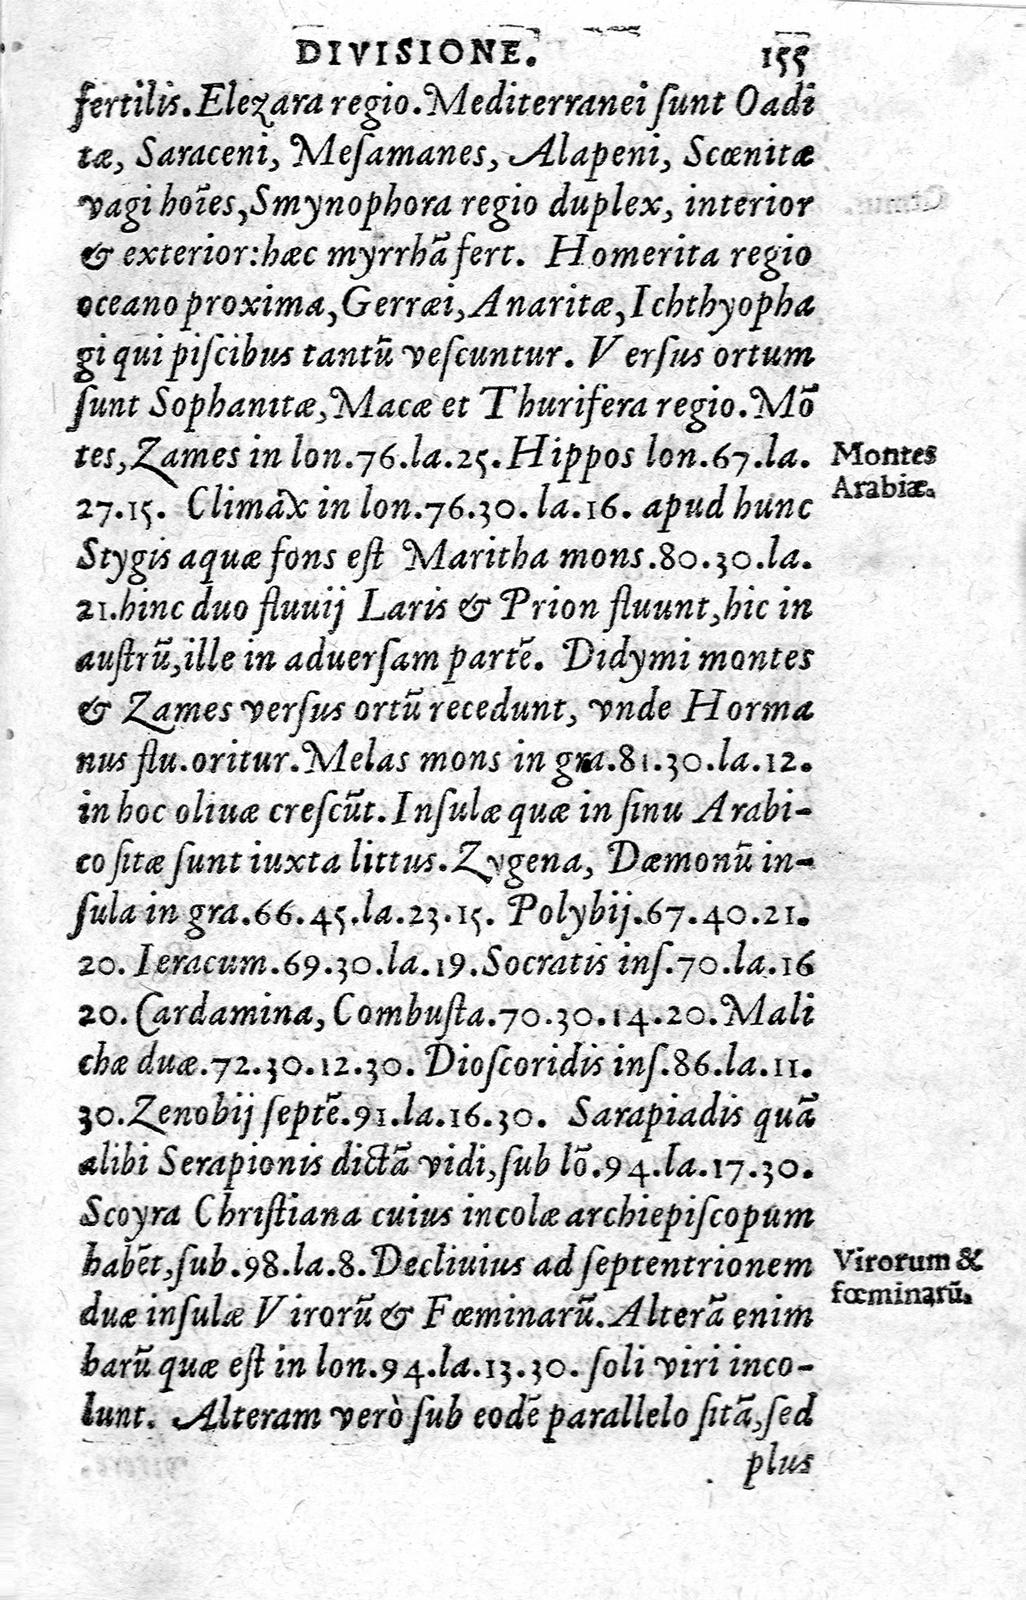 DIVISIONE. 155
fertilis. Elezara regio. Mediterranei ſunt Oadi
tæ, Saraceni, Meſamanes, Alapeni, Scœnitæ
vagi hoīes, Smynophora regio duplex, interior
& exterior: hæc myrrhā fert. Homerita regio
oceano proxima, Gerræi, Anaritæ, Ichthyopha
gi qui piſcibus tantū veſcuntur. Verſus ortum
ſunt Sophanitæ, Macæ et Thurifera regio. Mō
tes, Zames in lon.76.la.25. Hippos lon.67.la.
Montes
Arabiæ.
27.15. Climāx in lon.76.30.la.16. apud hunc
Stygis aquæ fons eſt Maritha mons.80.30.la.
21. hinc duo fluuij Laris & Prion fluunt, hic in
auſtrū, ille in aduerſam partē. Didymi montes
& Zames verſus ortū recedunt, vnde Horma
nus flu. oritur. Melas mons in gra.81.30.la.12.
in hoc oliuæ creſcūt. Inſulæ quæ in ſinu Arabi-
co ſitæ ſunt iuxta littus. Zygena, Dæmonū in-
ſula in gra.66.45.la.23.15. Polybij.67.40.21.
20. Ieracum.69.30.la.19. Socratis inſ.70.la.16
20. Cardamina, Combuſta.70.30.14.20. Mali
chæ duæ.72.30.12.30. Dioſcoridis inſ.86.la.11.
30. Zenobij ſeptē.91.la.16.30. Sarapiadis quā
alibi Serapionis dictā vidi, ſub lō.94.la.17.30.
Scoyra Chriſtiana cuius incolæ archiepiſcopum
habēt, ſub.98.la.8. Decliuius ad ſeptentrionem
Virorum &
fœminarū.
duæ inſulæ Virorū & Fœminarū. Alterā enim
harū quæ eſt in lon.94.la.13.30. ſoli viri inco-
lunt. Alteram verò ſub eodē parallelo ſitā, ſed
plus